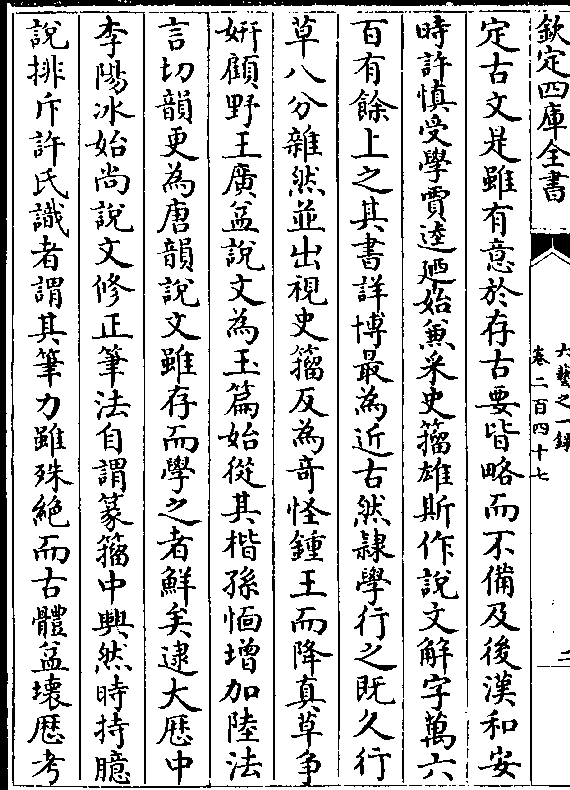 欽定四庫全書
六藝之一錄
卷二百四十七
二
定古文是雖有意於存古要皆略而不備及後漢和安
時許慎受學賈逵迺始兼采史籀雄斯作說文解字萬六
百有餘上之其書詳博最為近古然隸學行之既久行
草八分雜然並出視史籀反為奇怪鍾王而降真草争
妍顧野王廣益說文為玉篇始從其楷孫愐增加陸法
言切韻更為唐韻說文雖存而學之者鮮矣逮大歴中
李陽冰始尚說文修正筆法自謂篆籀中興然時持臆
說排斥許氏識者謂其筆力雖殊絶而古體益壊歴考